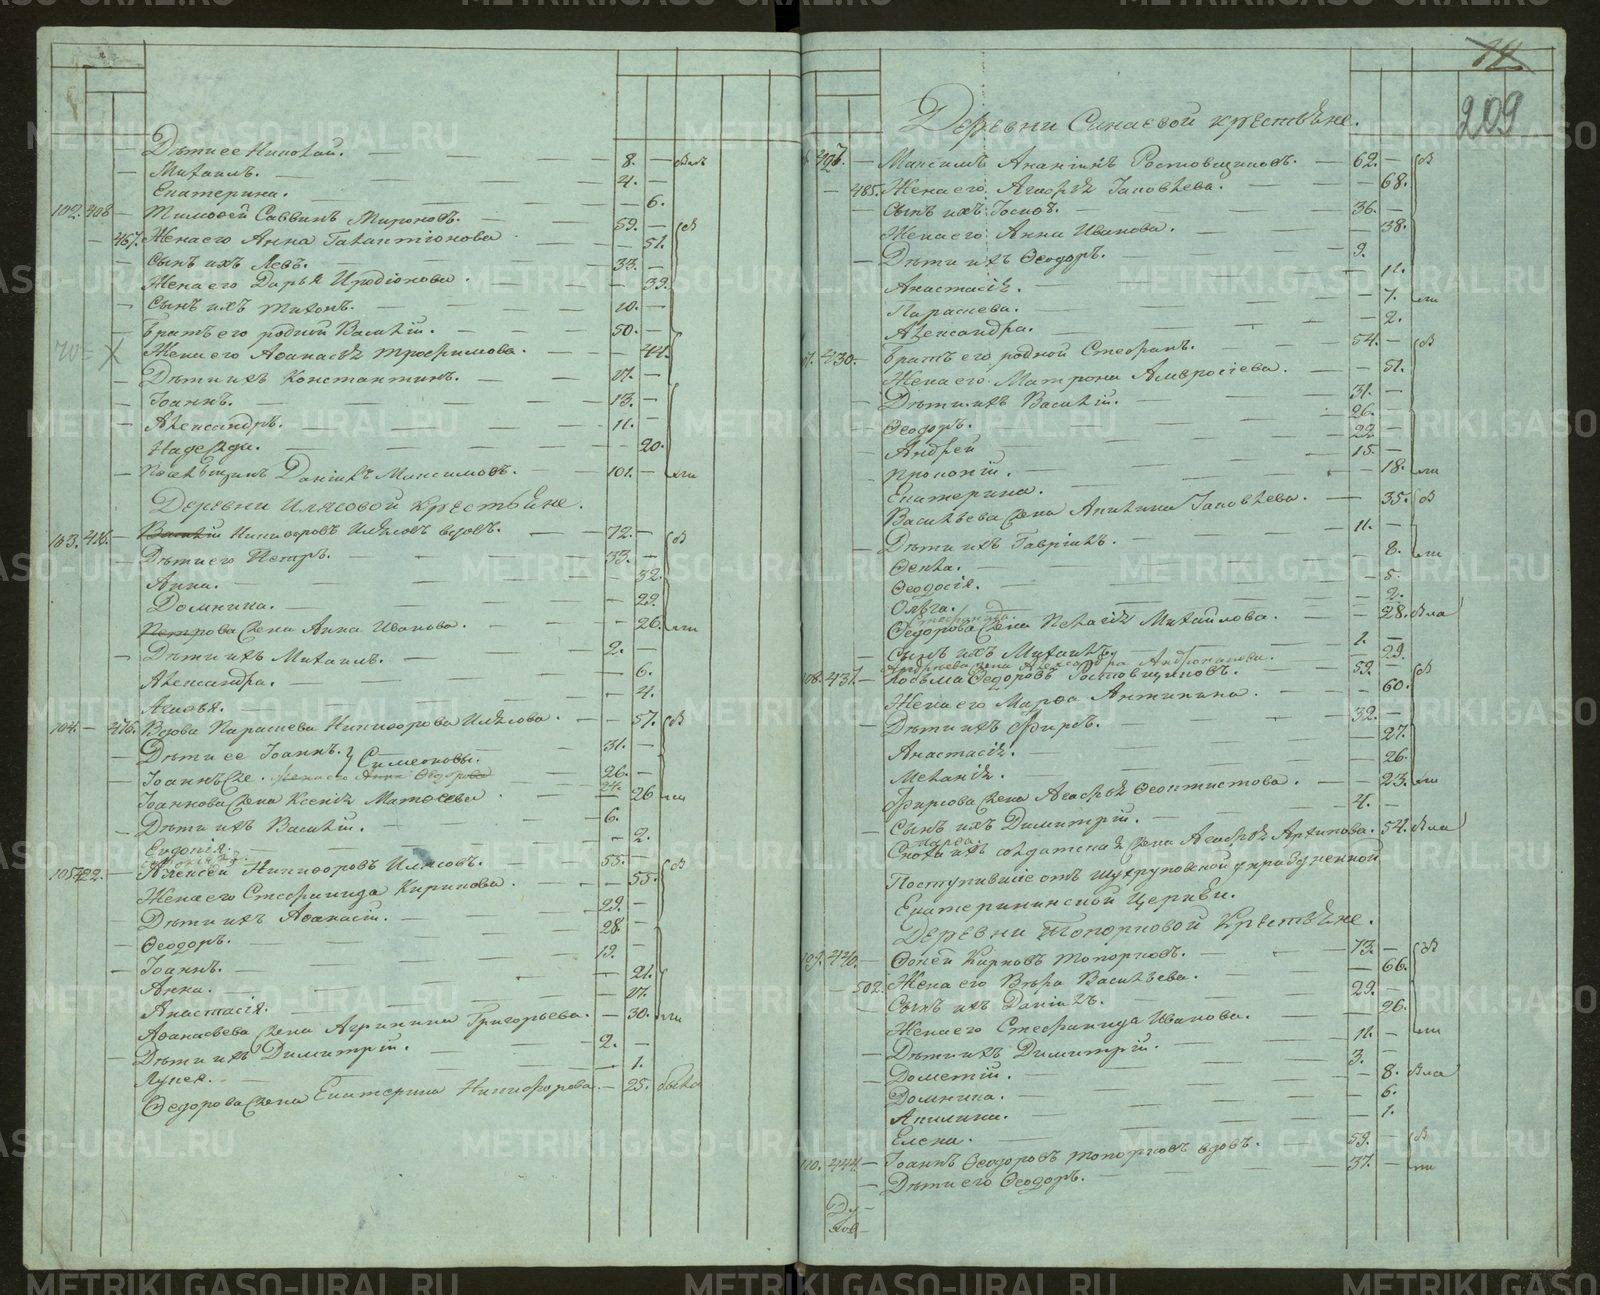 Дѣти ее Николай. 8.
Михаилъ. 4.
Екатерина. 6.
102. 408 Тимоѳей Саввинъ Мироновъ. 59.
467. Жена его Анна Галактіонова 51.
Сынъ ихъ Левъ. 33.
Жена его Дарья Иродіонова. 39.
Сынъ ихъ Тихонъ. 10.
Братъ его родный Василій. 50.
Жена его Аѳанасія Трофимова. 44.
Дѣти ихъ Константинъ. 17.
Іоаннъ. 13.
Александръ. 11.
Надежда. 20.
Даніилъ Максимовъ. 101.
Деревни Илясовой Крестьяне.
103. Никифоръ Илясовъ вдовъ. 72.
Дѣти его Петръ. 33.
Анна. 32.
Домника. 29.
Петрова жена Анна Иванова. 26.
Дѣти ихъ Михаилъ. 2.
Александра. 6.
Агафья. 4.
104. 476. Вдова Параскева Никифорова Илясова. 57.
Дѣти ее Іоаннъ. Симеоновы. 31.
Іоаннъ же. 26.
Іоаннова жена Ксенія Матѳеева 26
Дѣти ихъ Василій. 6.
Евдокія. 2.
105. 422. Алексей Никифоровъ Илясовъ. 55.
Жена его Стефанида Кирикова. 55.
Дѣти ихъ Аѳанасій. 29.
Ѳеодоръ. 28.
Іоаннъ. 19.
Анна. 21.
Анастасія. 17.
Аѳанасьева жена Агрипина Григорьева. 30.
Дѣти ихъ Димитрій. 2.
Лукея. 1.
Ѳедорова жена Екатерина Никифорова 25. была
209
Деревни Синаевой крестьяне.
Максимъ Ананіинъ Ростовщиковъ. 62.
485. Жена его Агафья Іаковлева. 68.
Сынъ ихъ Іосифъ. 36.
Жена его Анна Иванова. 38.
Дѣти ихъ Ѳеодоръ. 9.
Анастасія. 11.
Параскева. 7.
Александра. 2.
430. Братъ его родной Стефанъ. 54.
Жена его Матрона Амвросіева. 51.
Дѣти ихъ Василій. 31.
Ѳеодоръ. 26.
Андрей 22.
Прокопій. 15.
Екатерина. 18.
Васильева жена Акилина Іаковлева. 35.
Дѣти ихъ Гавріилъ. 11.
Ѳекла. 8.
Ѳеодосія. 5.
Ольга. 2.
Стефанида.
Ѳедорова жена Пелагія Михайлова. 28. была
Сынъ ихъ Михаилъ 1.
Андреева жена Александра 29.
108. 431. Косьма Ѳедоровъ Ростовщиковъ. 59.
Жена его Марѳа Антипина. 60.
Дѣти ихъ Фирсъ. 32.
Анастасія. 27.
Меланія. 26.
Фирсова жена Агафья Ѳеоктистова. 23.
Сынъ ихъ Димитрій. 4.
Сноха ихъ солдатская жена Агафья Архипова. 54. была
Поступившіе отъ упраздненной
Екатерининской Церкви.
Деревни Топорковой Крестьяне.
109. 440. Фокей Кириковъ Топорковъ. 73.
502. Жена его Вѣра Васильева. 66.
Сынъ ихъ Даніилъ. 29.
Жена его Стефанида Иванова. 26.
Дѣти ихъ Димитрій. 11.
Дометій. 3.
Домника. 8. была
Акилина. 6.
Елена. 1.
110. 444. Іоаннъ Ѳеодоровъ Топорковъ вдовъ. 59.
Дѣти его Ѳеодоръ. 37.
METRIKI.GASO-URAL.RU